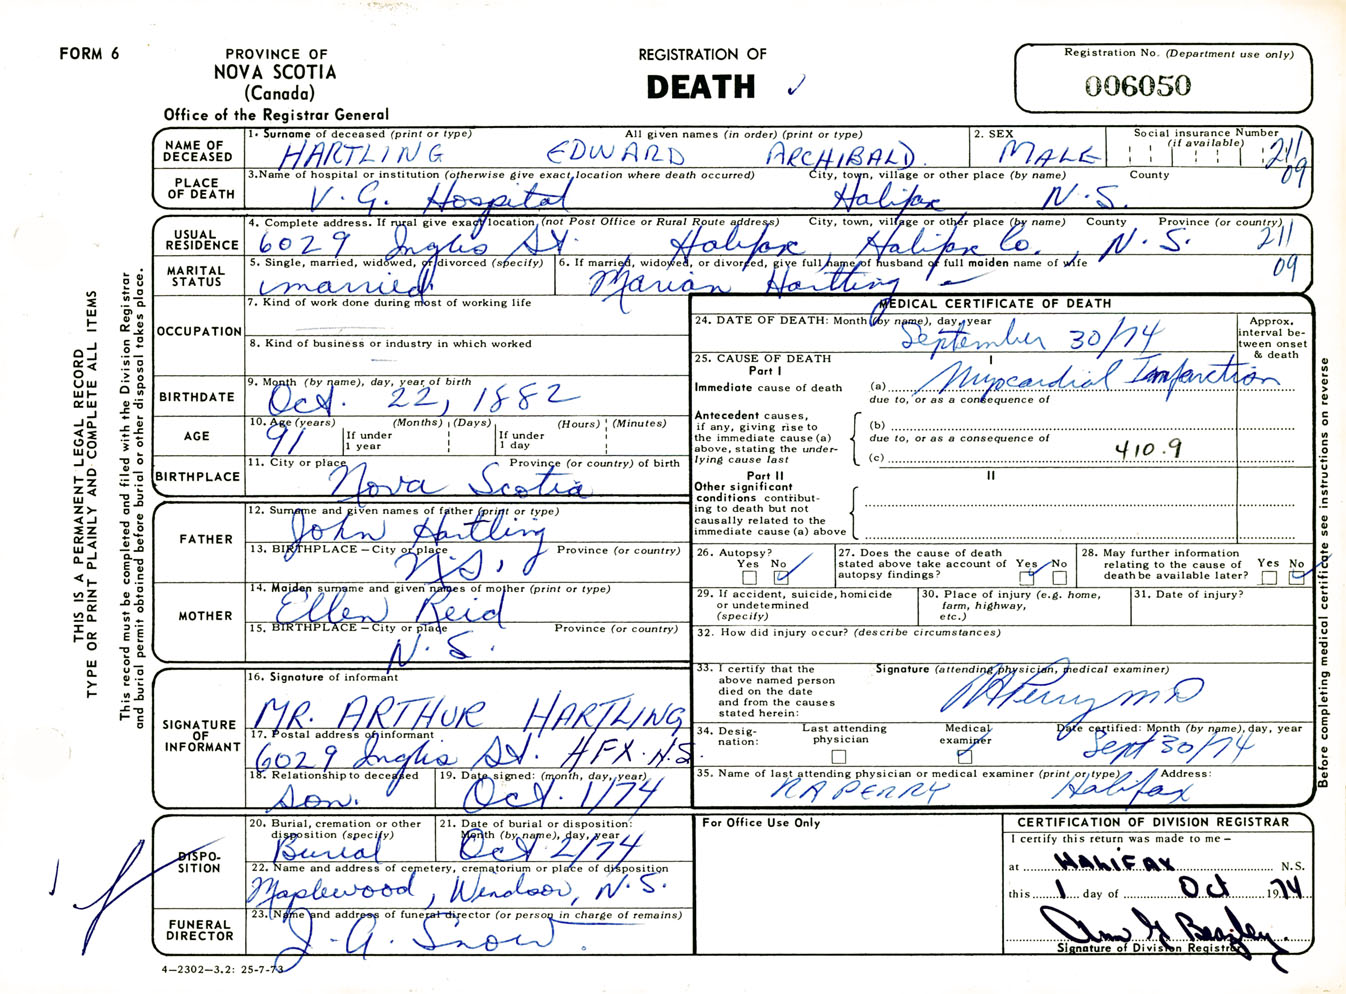 FORM 6
PROVINCE OF
NOVA SCOTIA
(Canada)
Office of the Registrar General
REGISTRATION OF
DEATH
Registration No. (Department use only)
006050
NAME OF DECEASED
1. Surname of deceased (print or type) All given names (in order) (print or type)
HARTLING EDWARD ARCHIBALD.
2. SEX
MALE
Social insurance Number
(if available)
211
09
PLACE OF DEATH
3. Name of hospital or institution (otherwise give exact location where death occurred) City, town, village or other place (by name) County
V. G. Hospital Halifax N.S.
USUAL RESIDENCE
4. Complete address. If rural give exact location (not Post Office or Rural Route address) City, town, village or other place (by name) County Province (or country)
6029 Inglis St. Halifax Halifax Co., N.S. 211
09
MARITAL STATUS
5. Single, married, widowed, or divorced (specify)
married
6. If married, widowed, or divorced, give full name of husband or full maiden name of wife
Marian Hartling
OCCUPATION
7. Kind of work done during most of working life
8. Kind of business or industry in which worked
BIRTHDATE
9. Month (by name), day, year of birth
Oct. 22, 1882
AGE
10. Age (years) (Months) (Days) (Hours) (Minutes)
91 If under 1 year If under 1 day
BIRTHPLACE
11. City or place Province (or country) of birth
Nova Scotia
FATHER
12. Surname and given names of father (print or type)
John Hartling
13. BIRTHPLACE – City or place Province (or country)
N.S.
MOTHER
14. Maiden surname and given names of mother (print or type)
Ellen Reid
15. BIRTHPLACE – City or place Province (or country)
N.S.
SIGNATURE OF INFORMANT
16. Signature of informant
MR. ARTHUR HARTLING
17. Postal address of informant
6029 Inglis St. HFX. N.S.
18. Relationship to deceased
Son.
19. Date signed: (month, day, year)
Oct. 1/74
DISPOSITION
20. Burial, cremation or other disposition (specify)
Burial
21. Date of burial or disposition: Month (by name), day, year
Oct 2/74
22. Name and address of cemetery, crematorium or place of disposition
Maplewood, Windsor, N.S.
FUNERAL DIRECTOR
23. (Name and address of funeral director (or person in charge of remains)
J. A. Snow.
4–2302–3.2: 25-7-73
MEDICAL CERTIFICATE OF DEATH
24. DATE OF DEATH: Month (by name), day, year
September 30/74
Approx. interval between onset & death
25. CAUSE OF DEATH
Part I
I
Immediate cause of death
(a) Myocardial Infarction
due to, or as a consequence of
Antecedent causes, if any, giving rise to the immediate cause (a) above, stating the underlying cause last
(b)
due to, or as a consequence of
(c) 410.9
Part II
II
Other significant conditions contributing to death but not causally related to the immediate cause (a) above
26. Autopsy?
Yes No
27. Does the cause of death stated above take account of autopsy findings?
Yes No
28. May further information relating to the cause of death be available later?
Yes No
29. If accident, suicide, homicide or undetermined (specify)
30. Place of injury (e.g. home, farm, highway, etc.)
31. Date of injury?
32. How did injury occur? (describe circumstances)
33. I certify that the above named person died on the date and from the causes stated herein:
Signature (attending physician, medical examiner)
RA Perry MD
34. Designation:
Last attending physician
Medical examiner
Date certified: Month (by name), day, year
Sept 30/74
35. Name of last attending physician or medical examiner (print or type) Address:
RA PERRY Halifax
For Office Use Only
CERTIFICATION OF DIVISION REGISTRAR
I certify this return was made to me –
at HALIFAX N.S.
this 1 day of Oct 1974
Signature of Division Registrar
THIS IS A PERMANENT LEGAL RECORD
TYPE OR PRINT PLAINLY AND COMPLETE ALL ITEMS
This record must be completed and filed with the Division Registrar
and burial permit obtained before burial or other disposal takes place.
Before completing medical certificate see instructions on reverse